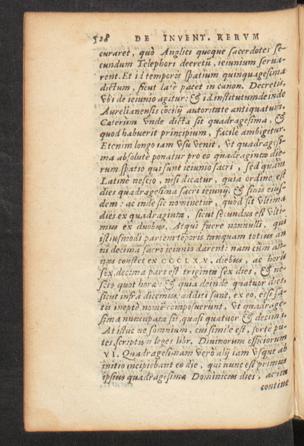 528 DE INVENT. RERVM
curaret, quò Anglici quoque sacerdotes se-
cundum Telephori decretū, ieiunium serua-
rent. Et id temporis spatium quinquagesima
dictum, sicut latè patet in canon. Decretis,
vbi de ieiunio agitur: & id institutum deinde
Aurelianensis cōcilij autoritate antiquatum.
Caeterùm vnde dicta sit quadragesima, &
quod habuerit principium, facilè ambigitur.
Etenim longo iam vsu venit, vt quadragesi-
ma absolutè ponatur pro eo quadraginta die-
rum spatio qui sunt ieiunio sacri, sed quàm
Latinè nescio, nisi dicatur, quia ordine est
dies quadragesima sacri ieiunij, & finis eius-
dem: ac inde sic nominetur, quòd sit vltima
dies ex quadraginta, sicut secundus est vlti-
mus ex duobus. Atqui fuere nonnulli, qui
istiusmodi partem temporis tanquam totius an
ni decimā sacro ieiunio darent: nam cùm an-
nus constet ex CCCLXV. diebus, ac horis
sex, decima pars est triginta sex dies, &
scio quot horae: & quia deinde quatuor dies,
sicut infrà dicemus, additi sunt, ex eo, esse sa-
tis ineptè nomē composuerunt, vt quadrage-
sima nuncupata sit, quasi quatuor & decima.
At istuc ne somnium, cui simile est, fortè pu-
tes, scriptum leges libr. Diuinorum officiorum
VI. Quadragesimam verò alij iam vsque ab
initio incipiebant eo die, qui nunc est primus
ipsius quadragesimae Dominicus dies, ac
continé